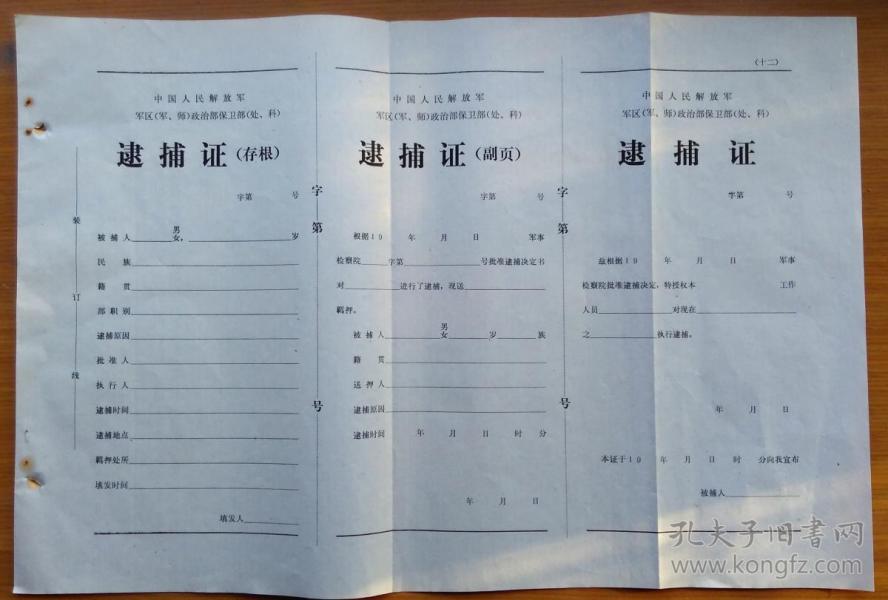 (十二)
中国人民解放军
军区(军、师)政治部保卫部(处、科)
逮捕证(存根)
字第 号
被捕人 男 女, 岁
民族
籍贯
部职别
逮捕原因
批准人
执行人
逮捕时间
逮捕地点
羁押处所
填发时间
填发人
装订线
字第 号
中国人民解放军
军区(军、师)政治部保卫部(处、科)
逮捕证(副页)
字第 号
根据19 年 月 日 军事
检察院 字第 号批准逮捕决定书
对 进行了逮捕,现送
羁押。
被捕人 男 女 岁 族
籍贯
送押人
逮捕原因
逮捕时间 年 月 日 时 分
年 月 日
字第 号
中国人民解放军
军区(军、师)政治部保卫部(处、科)
逮捕证
字第 号
兹根据19 年 月 日 军事
检察院批准逮捕决定,特授权本 工作
人员 对现在
之 执行逮捕。
年 月 日
本证于19 年 月 日 时 分向我宣布
被捕人
孔夫子旧书网
www.kongfz.com